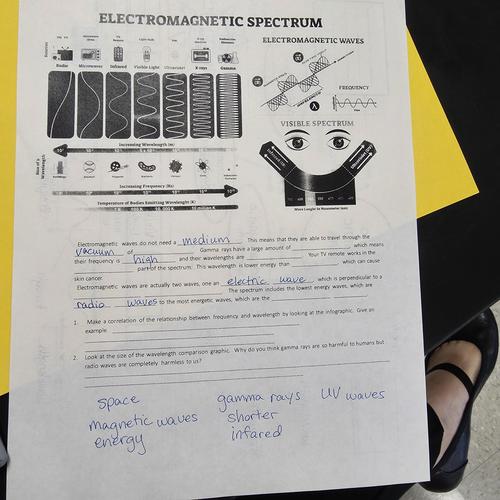 ELECTROMAGNETIC SPECTRUM
Radio Microwaves Infrared Visible Light Ultraviolet X rays Gamma
Increasing Wavelength (m)
Increasing Frequency (Hz)
Temperature of Bodies Emitting Wavelenght (K)
ELECTROMAGNETIC WAVES
FREQUENCY
VISIBLE SPECTRUM
Electromagnetic waves do not need a medium. This means that they are able to travel through the
vacuum of ____. Gamma rays have a large amount of ____, which means
their frequency is high and their wavelengths are ____. Your TV remote works in the
____ part of the spectrum. This wavelength is lower energy than ____, which can cause
skin cancer.
Electromagnetic waves are actually two waves, one an electric wave, which is perpendicular to a
____. The spectrum includes the lowest energy waves, which are
radio waves to the most energetic waves, which are the ____.
1. Make a correlation of the relationship between frequency and wavelength by looking at the infographic. Give an
example.
2. Look at the size of the wavelength comparison graphic. Why do you think gamma rays are so harmful to humans but
radio waves are completely harmless to us?
space gamma rays UV waves
magnetic waves shorter
energy infared